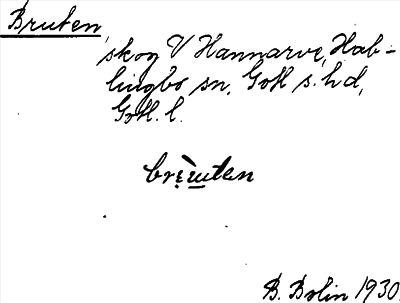 Bruten,
skog V Hannarve, Hab-
lingbo sn, Gotl s. hd,
Gotl. l.
brèuten
B. Bolin 1930.